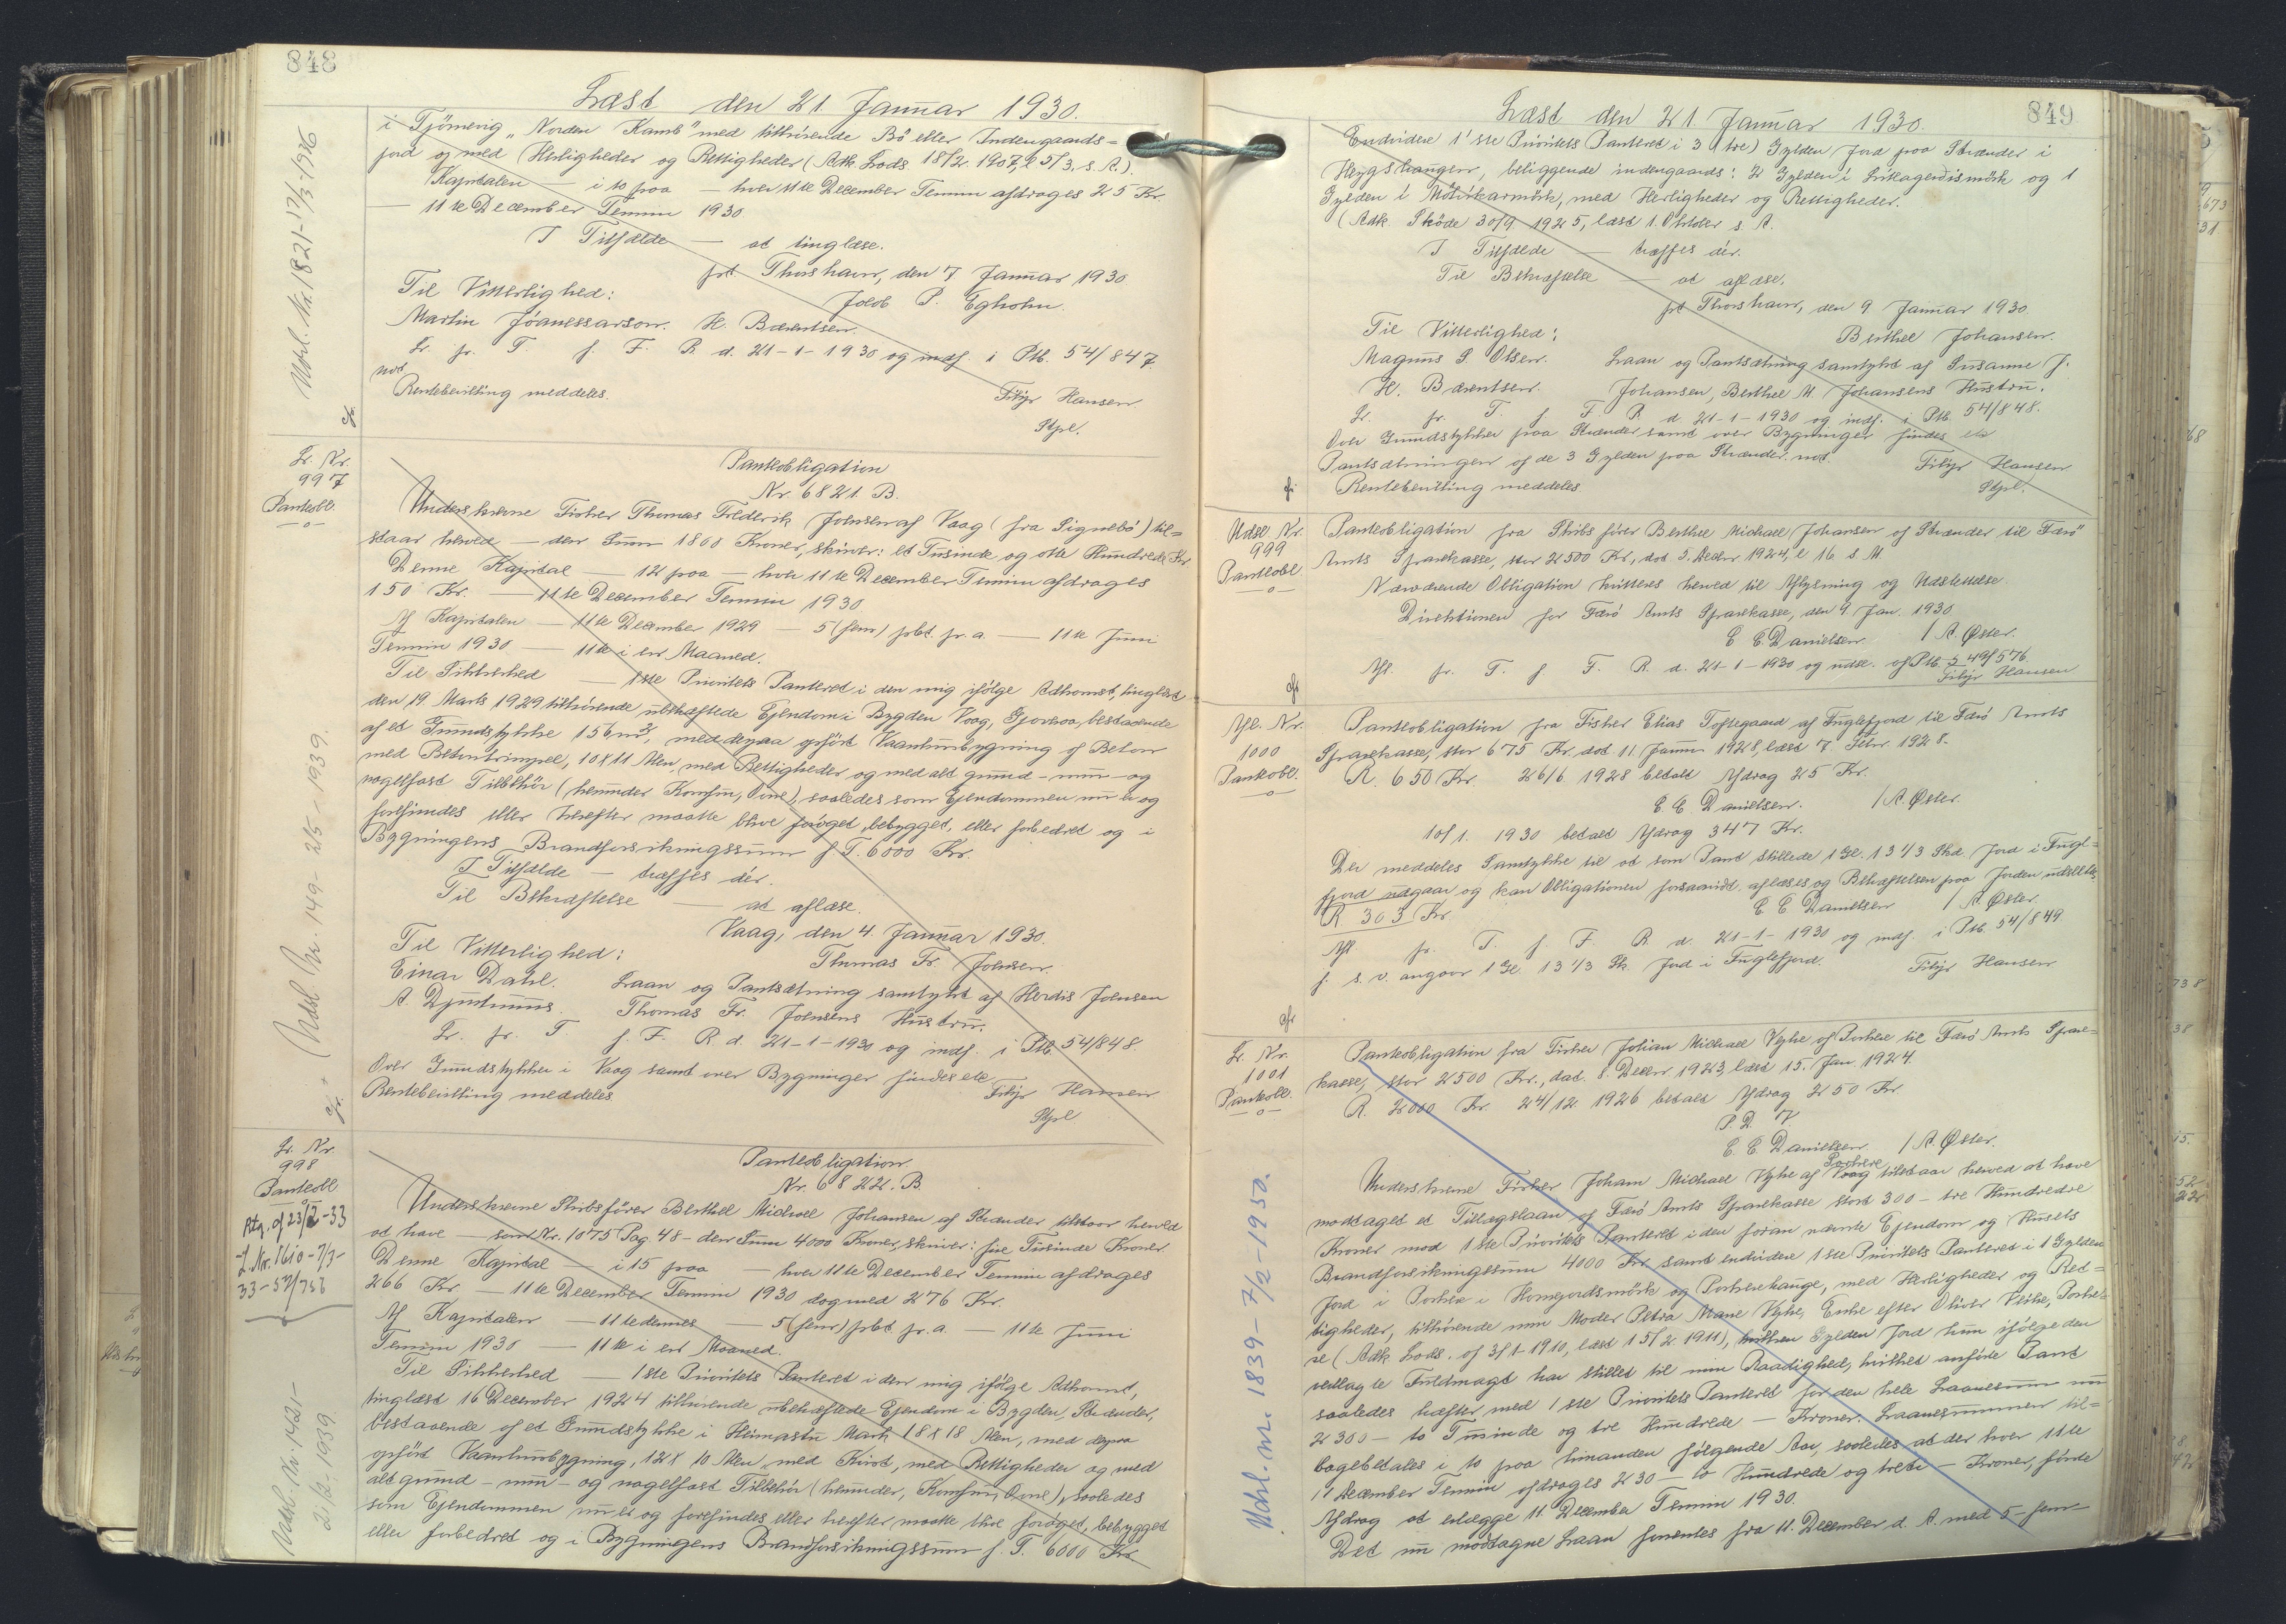 848
Læst den 21. Januar 1930.
i Tjörnevig "Norden Kamb" med tilhørende Bö eller Indengaards=
jord og med Herligheder og Rettigheder (Adk. Lods. 18/2. 1907, l. 5/3. s. A.).
Kapitalen — i 10 paa — hver 11te December Termin afdrages 25 Kr.
— 11te December Termin 1930.
I Tilfælde — at tinglæse.
pt Thorshavn, den 7 Januar 1930.
Til Vitterlighed: Jacob P. Egholm.
Martin Jóanessarson. H. Bærentsen.
Lr. fr. T. f. F. R. d. 21-1-1930 og indf. i Ptb. 54/847.
not.
Rentebevilling meddeles. Filip Hansen.
Stpl.
Udsl. Nr. 1821-17/3-1936
Lr. Nr.
997
Panteobl.
Panteobligation
Nr. 6821. B.
Underskrevne Fisker Thomas Frederik Joensen af Vaag (fra Signebö) til=
staar herved — den Sum 1800 Kroner, skriver: et Tusinde og otte Hundrede Kr.
Denne Kapital — 12 paa — hver 11te December Termin afdrages
150 Kr. — 11te December Termin 1930
Af Kapitalen — 11te December 1929 — 5 (fem) pCt. pr. a. — 11te Juni
Termin 1930 — 11te i en Maaned.
Til Sikkerhed — 1ste Prioritets Panteret i den mig ifølge Adkomst, tinglæst
den 19. Marts 1929 tilhørende ubehæftede Ejendom i Bygden Vaag, Gjoveraa, bestaaende
af et Grundstykke 156 m², med derpaa opført Vaaningsbygning af Beton
med Betontrimpel, 10 x 11 Alen, med Rettigheder og med alt grund- mur- og
nagelfast Tilbehør (herunder Komfur, Ovne), saaledes som Ejendommen nu er og
forefindes eller herefter maatte blive forøget, bebygget, eller forbedret og i
Bygningens Brandforsikringssum f. T. 6000 Kr.
I Tilfælde — træffes dér.
Til Bekræftelse — at aflæse.
Vaag, den 4. Januar 1930.
Til Vitterlighed: Thomas Fr. Joensen.
Einar Dahl. Laan og Pantsætning samtykt af Herdis Joensen
A. Djurhuus. Thomas Fr. Joensens Hustru.
Lr. fr. T. f. F. R. d. 21-1-1930 og indf. i Ptb. 54/848
Over Grundstykker i Vaag samt over Bygninger findes ell.
Rentebevilling meddeles. Filip Hansen
Stpl
Udsl. Nr. 149- 2/5-1939.
Lr. Nr.
998
Panteobl.
Rtg. af 23/2-33
J. Nr. 1610-7/3-
33-57/756
Udsl. Nr. 1421-
2/2-1939
Panteobligation
Nr. 6822. B.
Underskrevne Skibsfører Berthel Michael Johansen af Strænder tilstaar herved
at have — som Nr. 1075 Pag. 48 - den Sum 4000 Kroner, skriver: fire Tusinde Kroner.
Denne Kapital — i 15 paa — hver 11te December Termin afdrages
266 Kr. — 11te December Termin 1930 dog med 276 Kr.
Af Kapitalen — 11te dennes — 5 (fem) pCt. pr. a. — 11te Juni
Termin 1930 — 11te i en Maaned.
Til Sikkerhed — 1ste Prioritets Panteret i den mig ifølge Adkomst,
tinglæst 16 December 1924 tilhørende ubehæftede Ejendom i Bygden, Strænder,
bestaaende af et Grundstykke i Heimastu Mark 18 x 18 Alen, med derpaa
opført Vaaningsbygning, 12 x 10 Alen med Kvist, med Rettigheder og med
alt grund- mur- og nagelfast Tilbehør (herunder, Komfur, Ovne), saaledes
som Ejendommen nu er og forefindes eller herefter maatte blive forøget, bebygget
eller forbedret og i Bygningens Brandforsikringssum f. T. 6000 Kr.
849
Læst den 21 Januar 1930.
Endvidere 1'ste Prioritets Panteret i 3 (tre) Gylden Jord paa Strænder i
Heygshaugen, beliggende indengaards: 2 Gylden i Lítlagerdismörk og 1
Gylden i Mölikarmörk, med Herligheder og Rettigheder.
(Adk. Skøde 30/9 1925, læst 1. Oktober s. A.
I Tilfælde — træffes dér.
Til Bekræftelse — at aflæse.
pt Thorshavn, den 9 Januar 1930.
Til Vitterlighed: Berthel Johansen.
Magnus S. Olsen. Laan og Pantsætning samtykt af Susanne J.
H. Bærentsen. Johansen, Berthel M. Johansens Hustru.
Lr. fr. T. f. F. R. d. 21-1-1930 og indf. i Ptb 54/848.
Over Grundstykker paa Strænder samt over Bygninger findes ell
Pantsætningen af de 3 Gylden paa Strænder not. Filip Hansen
Rentebevilling meddeles Stpl.
Udsl. Nr.
999
Panteobl.
Panteobligation fra Skibsfører Berthel Michael Johansen af Strænder til Færö
Amts Sparekasse, stor 2500 Kr., dat. 5. Decbr 1924, l. 16. s. M
Nærværende Obligation kvitteres herved til Aflysning og Udslettelse.
Direktionen for Færö Amts Sparekasse, den 9. Jan. 1930
E. E. Danielsen / A. Øster.
Afl. fr. T. f. F. R. d. 21-1-1930 og udsl. af Ptb. 49/576
Filip Hansen
Afl. Nr.
1000
Panteobl.
Panteobligation fra Fisker Elias Toftegaard af Fuglefjord til Færö Amts
Sparekasse, stor 675 Kr. dat. 11. Januar 1928, læst 7. Febr. 1928.
R. 650 Kr. 26/6 1928 betalt Afdrag 25 Kr.
E. E. Danielsen. / A. Øster.
10/1. 1930 betalt Afdrag 347 Kr.
Der meddeles Samtykke til at som Pant stillede 1 Gl. 13 1/3 Skd. Jord i Fugl=
fjord udgaar og kan Obligationen forsaavidt aflæses og Behæftelsen paa Jorden udslettes
R 303 Kr. E. E. Danielsen / A. Øster.
Afl fr. T. f. F. R. d. 21-1-1930 og indf. i Ptb. 54/849
f. s. v. angaar 1 Gl. 13 1/3 Sk. Jord i Fuglefjord. Filip Hansen
Lr. Nr.
1001
Panteobl.
Panteobligation fra Fisker Johan Michael Vyhe af Porkere til Færö Amts Spare=
kasse, stor 2500 Kr., dat. 8. Decbr 1923, læst 15. Jan 1924.
R. 2000 Kr. 24/12. 1926 betalt Afdrag 250 Kr.
P. D. V.
E. E. Danielsen / A. Øster.
Underskrevne Fisker Johan Michael Vyhe af Vaag Porkere tilstaar herved at have
modtaget et Tillægslaan af Færö Amts Sparekasse stort 300 - tre Hundrede
Kroner mod 1ste Prioritets Panteret i den foran nævnte Ejendom og Husets
Brandforsikringssum 4000 Kr samt endvidere 1ste Prioritets Panteret i 1 Gylden
Jord i Porkere i Homgardsmörk og Porkerehauge, med Herligheder og Ret=
tigheder, tilhørende min Moder Petra Marie Vyhe, Enke efter Oliver Vyhe, Porke=
re (Adk. Lods. af 3/1-1910, læst 15/2. 1911), hvilken Gylden Jord hun ifølge den
vedlagte Fuldmagt har stillet til min Raadighed, hvilket anførte Pant
saaledes hæfter med 1ste Prioritets Panteret for den hele Laanesum nu
2300 - to Tusinde og tre Hundrede - Kroner. Laanesummen til=
bagebetales i 10 paa hinanden følgende Aar, saaledes at der hver 11te
11 December Termin afdrages 230 - to Hundrede og tredive - Kroner, første
Afdrag at erlægge 11. December Termin 1930.
Det nu modtagne Laan forrentes fra 11. December d. A. med 5 - fem
Udsl. nr. 1839-7/2-1950.